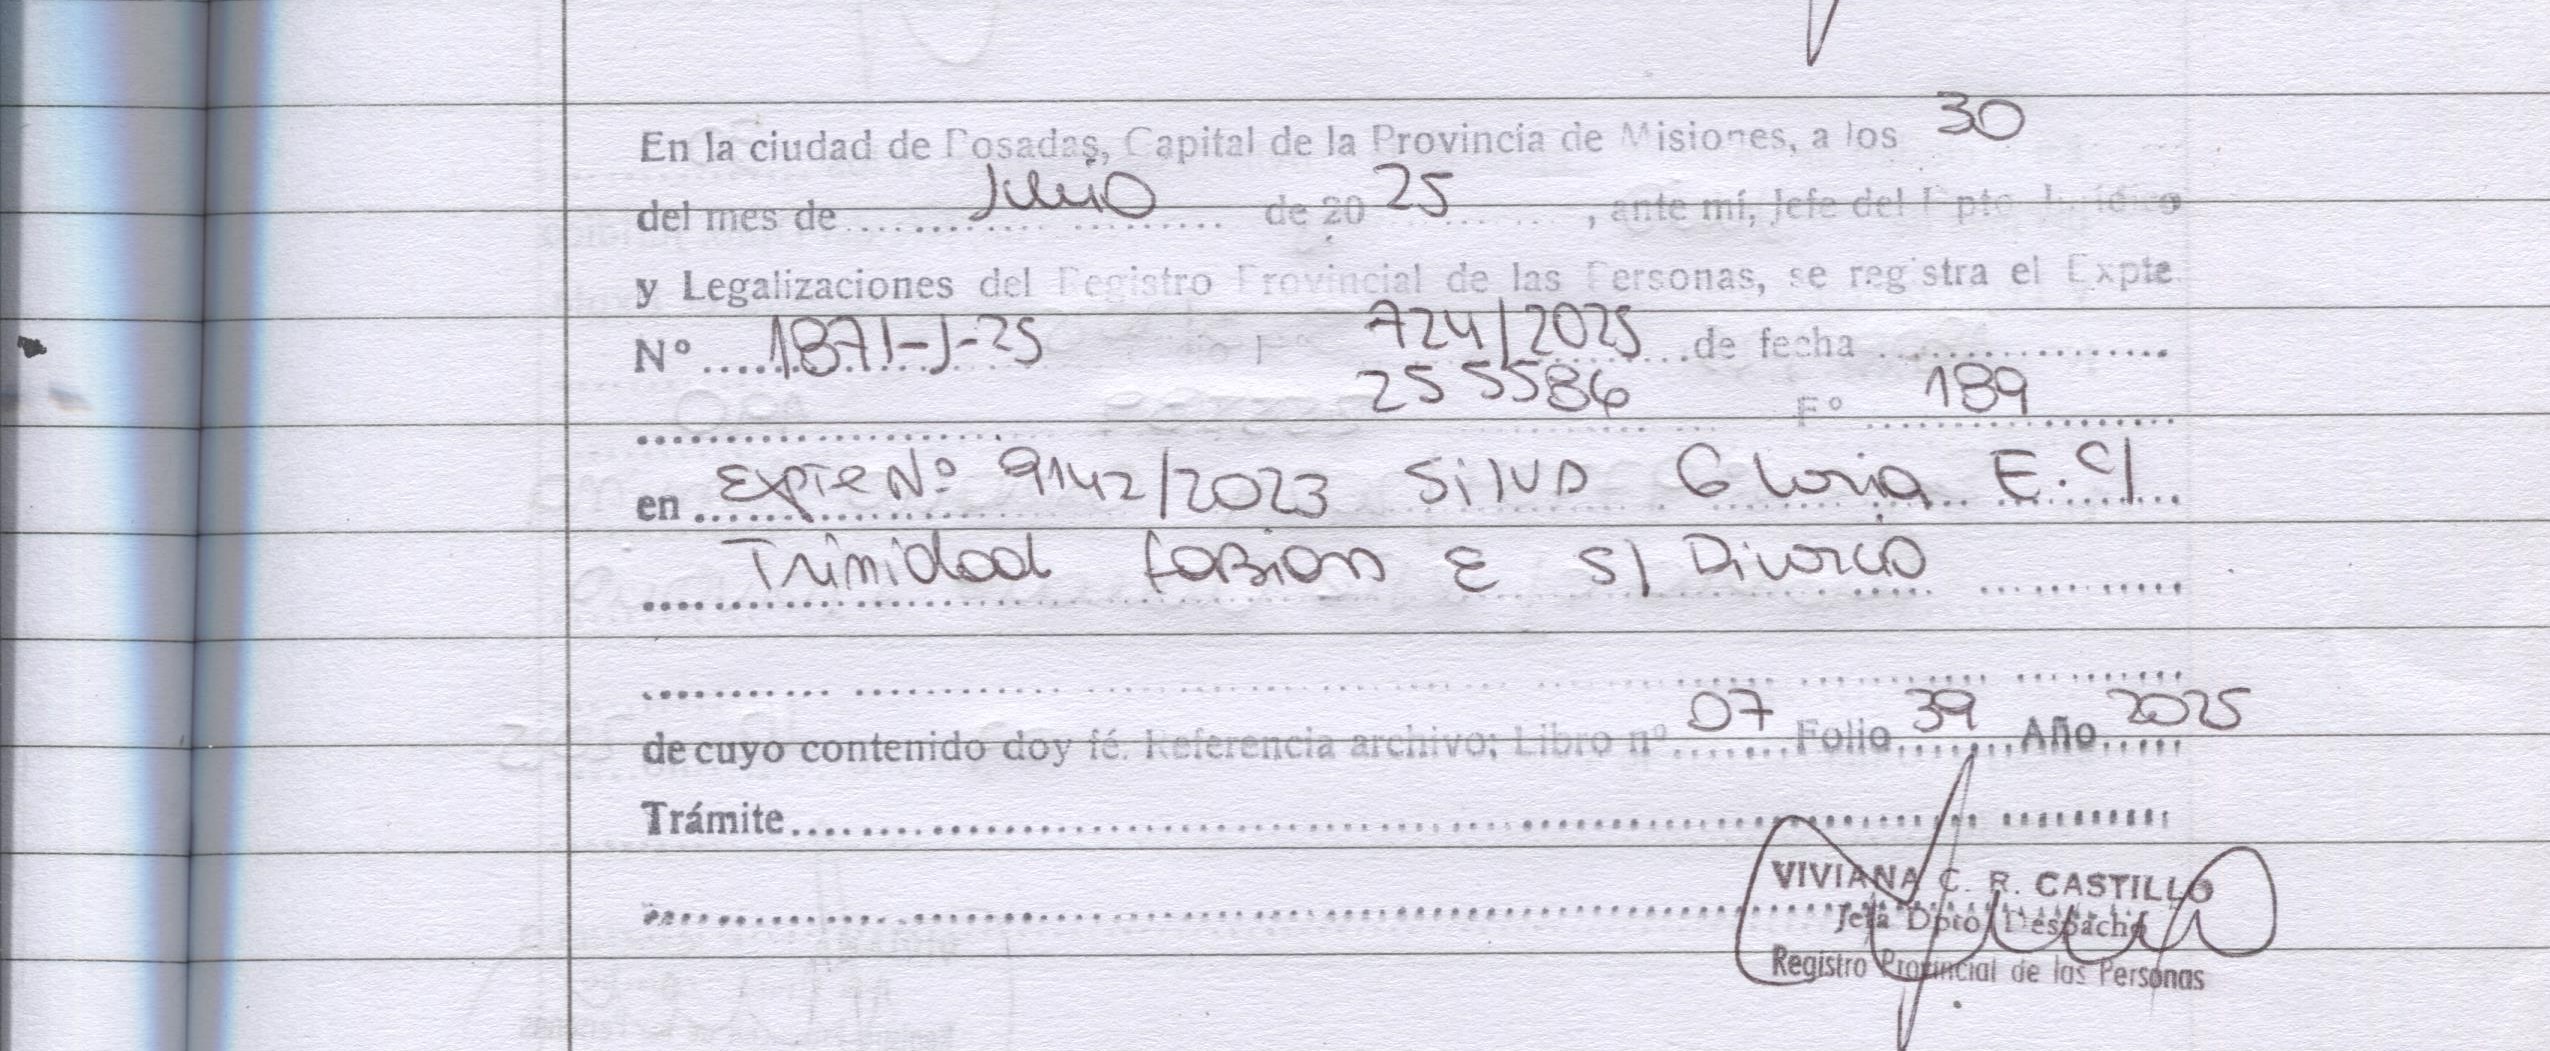 En la ciudad de Posadas, Capital de la Provincia de Misiones, a los 30
del mes de Junio de 20 25, ante mí, Jefe del Dpto. Jurídico
y Legalizaciones del Registro Provincial de las Personas, se registra el Expte.
Nº 1871-J-25 724/2025 de fecha
255586 Fº 189
en Expte Nº 9142/2023 Silva Gloria E. c/
Trinidad Fabian E s/ Divorcio
de cuyo contenido doy fé. Referencia archivo: Libro nº 07 Folio 39 Año 2025
Trámite
VIVIANA C. R. CASTILLO
Jefa Dpto Despacho
Registro Provincial de las Personas